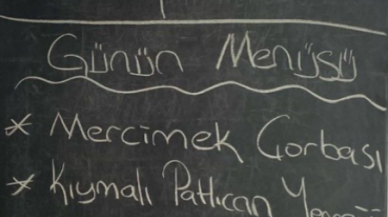 Günün Menüsü
* Mercimek Çorbası
* Kıymalı Patlıcan